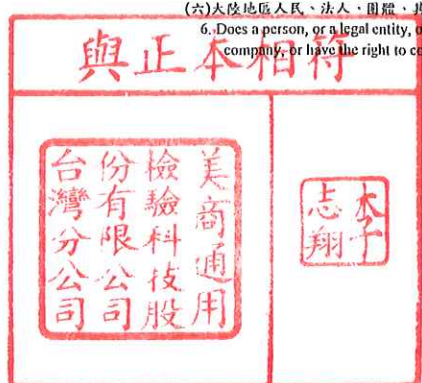 (六)大陸地區人民、法人、團體、其
6. Does a person, or a legal entity, o
company, or have the right to co
與正本相符
美商通用
檢驗科技股
份有限公司
台灣分公司
李
志翔